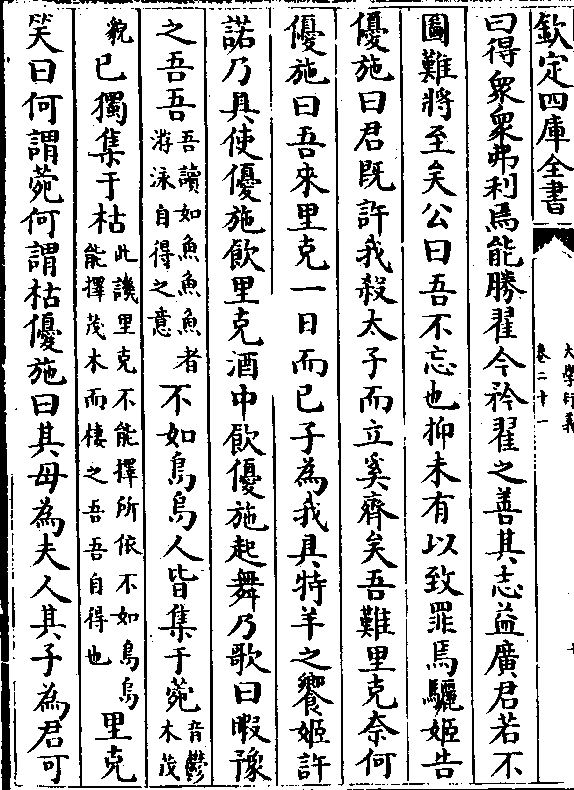 欽定四庫全書
大學衍義
卷二十一
曰得衆衆弗利焉能勝翟今矜翟之善其志益廣君若不
圖難將至矣公曰吾不忘也抑未有以致罪焉驪姬告
優施曰君既許我殺太子而立奚齊矣吾難里克奈何
優施曰吾來里克一日而已子為我具特羊之饗姬許
諾乃具使優施飲里克酒中飲優施起舞乃歌曰暇豫
之吾吾吾讀如魚魚魚者游泳自得之意不如鳥鳥人皆集于菀音鬱木茂
貌已獨集于枯此譏里克不能擇所依不如鳥鳥能擇茂木而棲之吾吾自得也里克
笑曰何謂菀何謂枯優施曰其母為夫人其子為君可